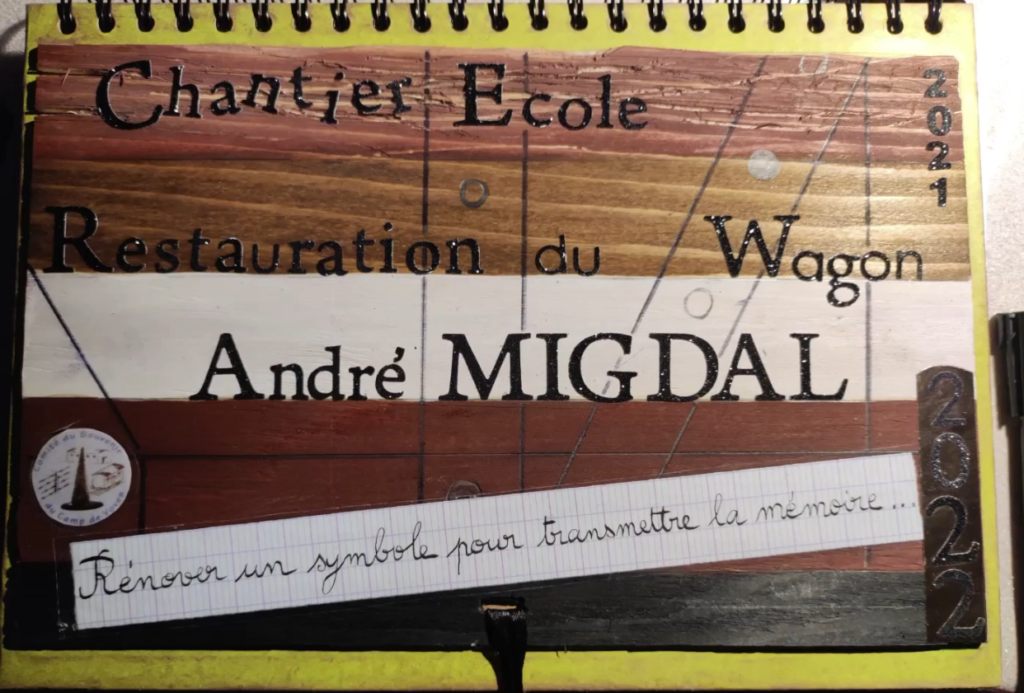 Chantier Ecole
2021
Restauration du Wagon
André MIGDAL
2022
Comité du Souvenir
du Camp de Voves
Rénover un symbole pour transmettre la mémoire...